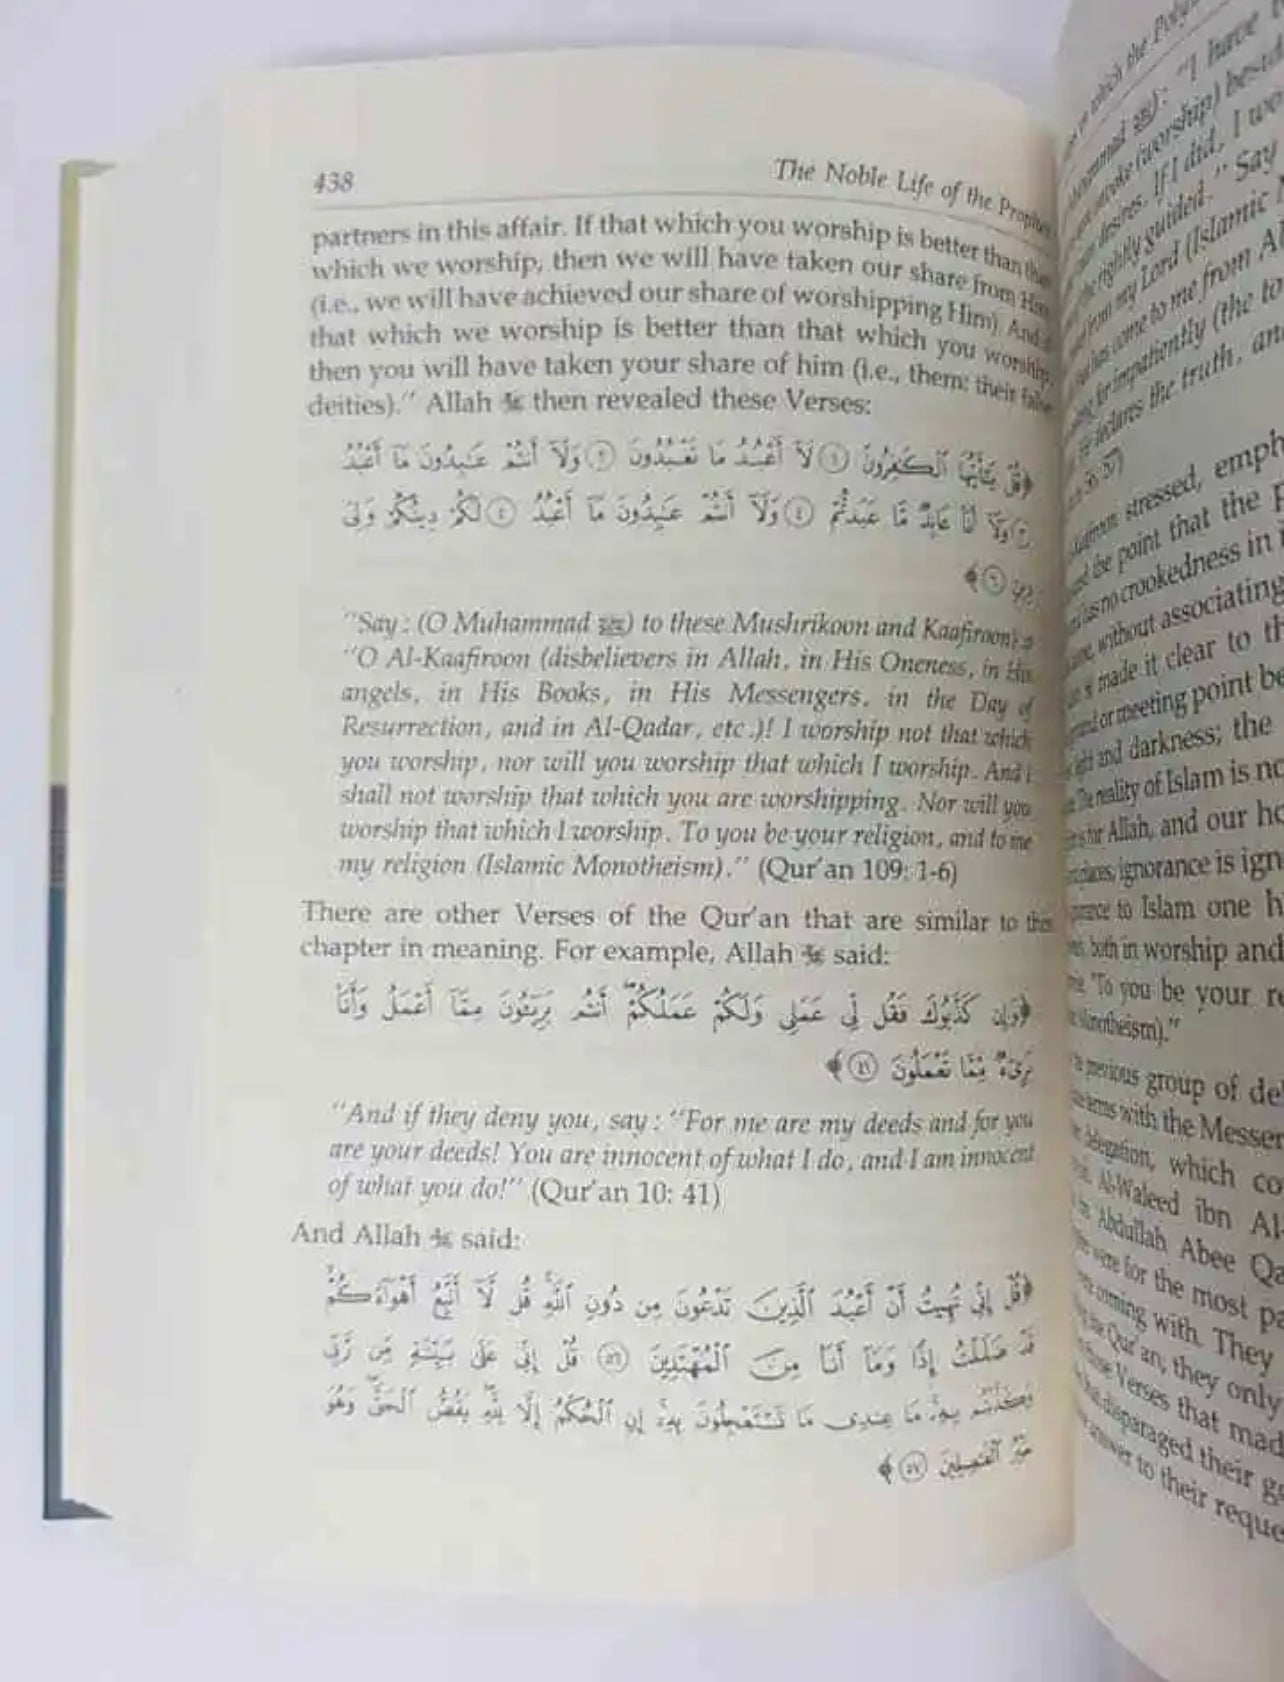 438
The Noble Life of the Prophet
partners in this affair. If that which you worship is better than that
which we worship, then we will have taken our share from Him
(i.e., we will have achieved our share of worshipping Him). And if
that which we worship is better than that which you worship,
then you will have taken your share of him (i.e., them; their false
deities)." Allah ﷻ then revealed these Verses:
﴿قُلْ يَٰٓأَيُّهَا ٱلْكَٰفِرُونَ ۝١ لَآ أَعْبُدُ مَا تَعْبُدُونَ ۝٢ وَلَآ أَنتُمْ عَٰبِدُونَ مَآ أَعْبُدُ
وَلَآ أَنَا۠ عَابِدٌ مَّا عَبَدتُّمْ ۝٤ وَلَآ أَنتُمْ عَٰبِدُونَ مَآ أَعْبُدُ ۝٥ لَكُمْ دِينُكُمْ وَلِىَ
دِينِ ۝٦﴾
"Say: (O Muhammad ﷺ) to these Mushrikoon and Kaafiroon):
"O Al-Kaafiroon (disbelievers in Allah, in His Oneness, in His
angels, in His Books, in His Messengers, in the Day of
Resurrection, and in Al-Qadar, etc.)! I worship not that which
you worship, nor will you worship that which I worship. And I
shall not worship that which you are worshipping. Nor will you
worship that which I worship. To you be your religion, and to me
my religion (Islamic Monotheism)." (Qur'an 109: 1-6)
There are other Verses of the Qur'an that are similar to this
chapter in meaning. For example, Allah ﷻ said:
﴿وَإِن كَذَّبُوكَ فَقُل لِّى عَمَلِى وَلَكُمْ عَمَلُكُمْ ۖ أَنتُم بَرِيٓـُٔونَ مِمَّآ أَعْمَلُ وَأَنَا۠
بَرِىٓءٌ مِّمَّا تَعْمَلُونَ ۝٤١﴾
"And if they deny you, say: "For me are my deeds and for you
are your deeds! You are innocent of what I do, and I am innocent
of what you do!" (Qur'an 10: 41)
And Allah ﷻ said:
﴿قُلْ إِنِّى نُهِيتُ أَنْ أَعْبُدَ ٱلَّذِينَ تَدْعُونَ مِن دُونِ ٱللَّهِ ۚ قُل لَّآ أَتَّبِعُ أَهْوَآءَكُمْ ۙ
قَدْ ضَلَلْتُ إِذًا وَمَآ أَنَا۠ مِنَ ٱلْمُهْتَدِينَ ۝٥٦ قُلْ إِنِّى عَلَىٰ بَيِّنَةٍ مِّن رَّبِّى
وَكَذَّبْتُم بِهِۦ ۚ مَا عِندِى مَا تَسْتَعْجِلُونَ بِهِۦٓ ۚ إِنِ ٱلْحُكْمُ إِلَّا لِلَّهِ ۖ يَقُصُّ ٱلْحَقَّ ۖ وَهُوَ
خَيْرُ ٱلْفَٰصِلِينَ ۝٥٧﴾
which the
"I have
(worship)
desires. If I did, I
rightly guided." Say
from my Lord (Islamic
has come to me from
for impatiently (the
declares the truth, and
57)
stressed,
the point that the
has no crookedness in
without associating
made it clear to
or meeting point
light and darkness; the
The reality of Islam is
for Allah, and our
ignorance is
to Islam one
both in worship and
"To you be your
previous group of
terms with the
delegation, which
Al-Waleed ibn
Abdullah Abee
were for the most
coming with. They
the Qur'an, they only
Verses that
disparaged their
answer to their